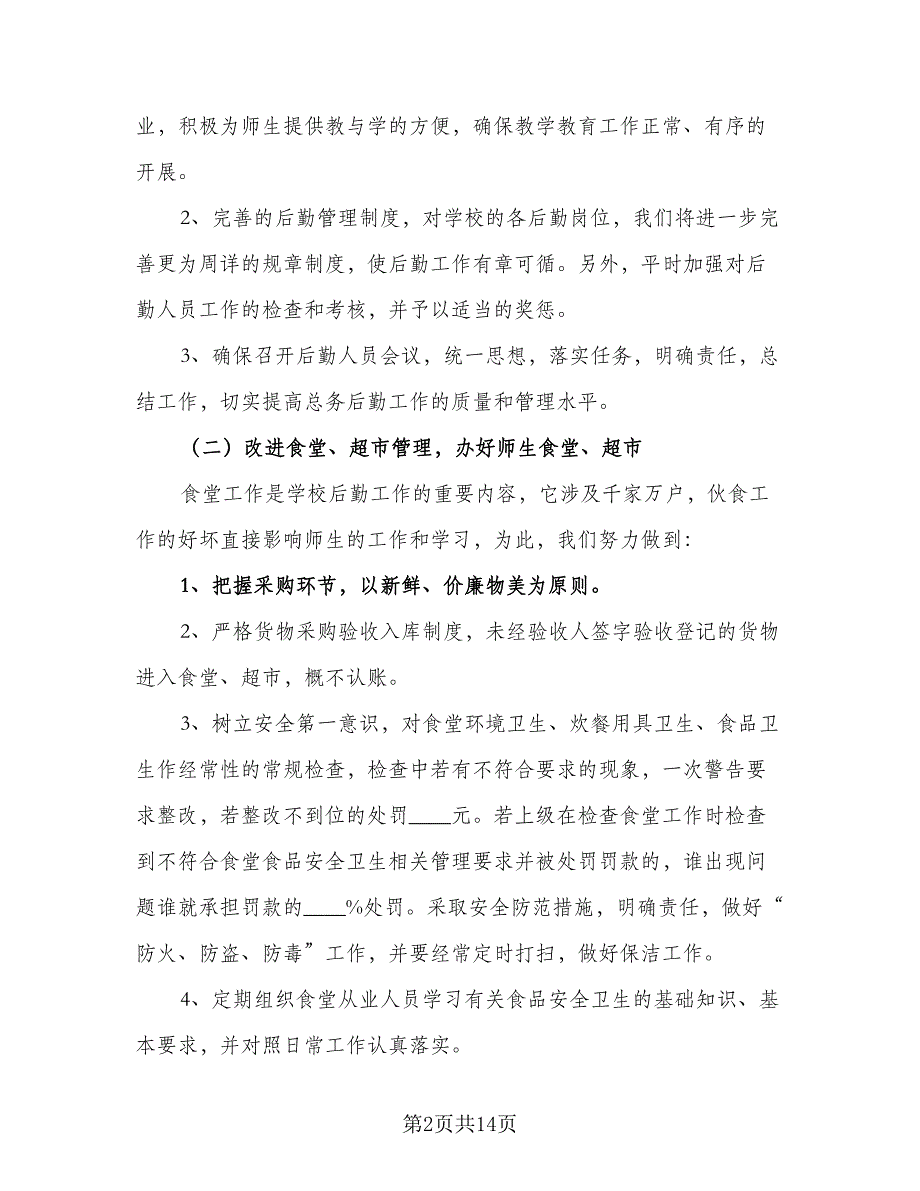 业，积极为师生提供教与学的方便，确保教学教育工作正常、有序的
开展。
2、完善的后勤管理制度，对学校的各后勤岗位，我们将进一步完
善更为周详的规章制度，使后勤工作有章可循。另外，平时加强对后
勤人员工作的检查和考核，并予以适当的奖惩。
3、确保召开后勤人员会议，统一思想，落实任务，明确责任，总
结工作，切实提高总务后勤工作的质量和管理水平。
（二）改进食堂、超市管理，办好师生食堂、超市
食堂工作是学校后勤工作的重要内容，它涉及千家万户，伙食工
作的好坏直接影响师生的工作和学习，为此，我们努力做到：
1、把握采购环节，以新鲜、价廉物美为原则。
2、严格货物采购验收入库制度，未经验收人签字验收登记的货物
进入食堂、超市，概不认账。
3、树立安全第一意识，对食堂环境卫生、炊餐用具卫生、食品卫
生作经常性的常规检查，检查中若有不符合要求的现象，一次警告要
求整改，若整改不到位的处罚____元。若上级在检查食堂工作时检查
到不符合食堂食品安全卫生相关管理要求并被处罚罚款的，谁出现问
题谁就承担罚款的____%处罚。采取安全防范措施，明确责任，做好“
防火、防盗、防毒”工作，并要经常定时打扫，做好保洁工作。
4、定期组织食堂从业人员学习有关食品安全卫生的基础知识、基
本要求，并对照日常工作认真落实。
第2页共14页